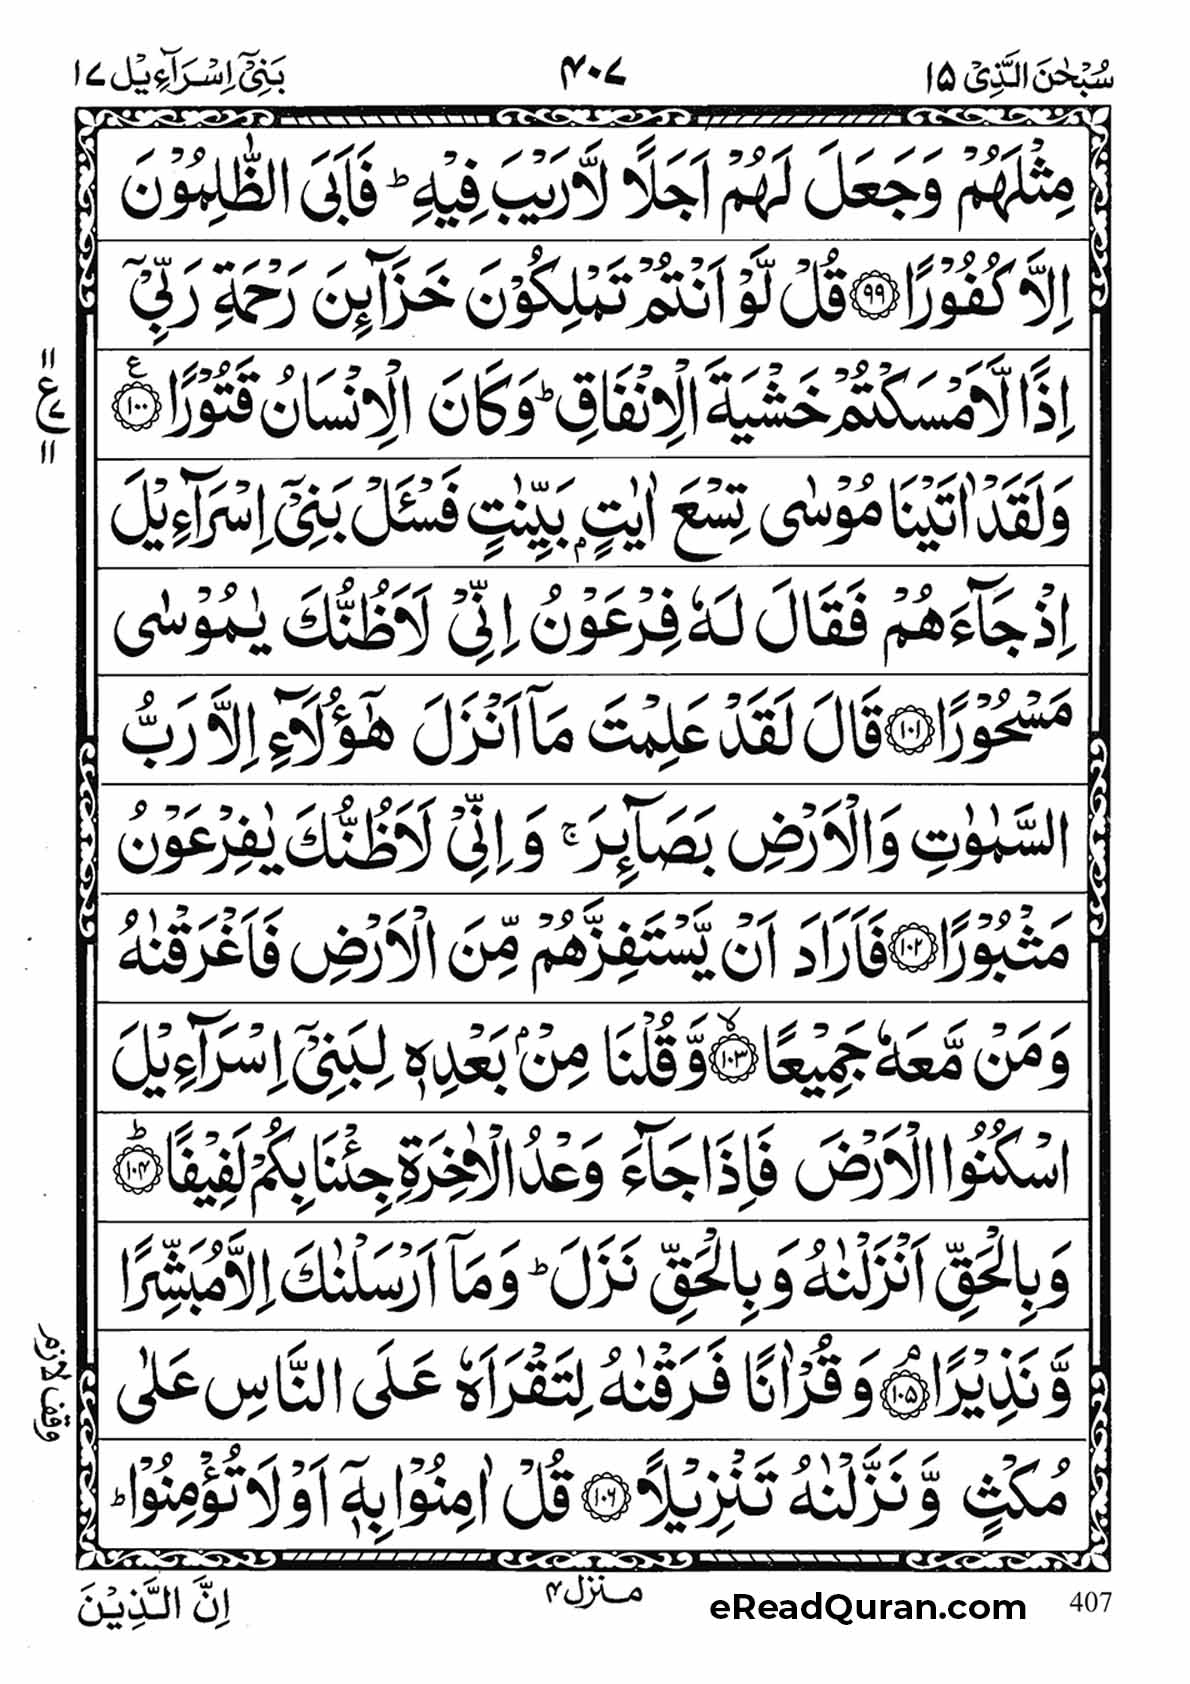 سُبْحٰنَ الَّذِیْۤ ۱۵
۴۰۷
بَنِیْۤ اِسْرَآءِیْل ۱۷
مِثْلَهُمْ وَجَعَلَ لَهُمْ اَجَلًا لَّا رَیْبَ فِیْهِ ؕ فَاَبَی الظّٰلِمُوْنَ
اِلَّا كُفُوْرًا ﴿۹۹﴾ قُلْ لَّوْ اَنْتُمْ تَمْلِكُوْنَ خَزَآئِنَ رَحْمَةِ رَبِّیْۤ
اِذًا لَّاَمْسَكْتُمْ خَشْیَةَ الْاِنْفَاقِ ؕ وَكَانَ الْاِنْسَانُ قَتُوْرًا ﴿۱۰۰﴾ ع
۱۱ ع ۱۱
وَلَقَدْ اٰتَیْنَا مُوْسٰی تِسْعَ اٰیٰتٍۭ بَیِّنٰتٍ فَسْـَٔلْ بَنِیْۤ اِسْرَآءِیْلَ
اِذْ جَآءَهُمْ فَقَالَ لَهٗ فِرْعَوْنُ اِنِّیْ لَاَظُنُّكَ یٰمُوْسٰی
مَسْحُوْرًا ﴿۱۰۱﴾ قَالَ لَقَدْ عَلِمْتَ مَاۤ اَنْزَلَ هٰۤؤُلَآءِ اِلَّا رَبُّ
السَّمٰوٰتِ وَالْاَرْضِ بَصَآئِرَ ۚ وَاِنِّیْ لَاَظُنُّكَ یٰفِرْعَوْنُ
مَثْبُوْرًا ﴿۱۰۲﴾ فَاَرَادَ اَنْ یَّسْتَفِزَّهُمْ مِّنَ الْاَرْضِ فَاَغْرَقْنٰهُ
وَمَنْ مَّعَهٗ جَمِیْعًا ﴿۱۰۳﴾ۙ وَّقُلْنَا مِنْۢ بَعْدِهٖ لِبَنِیْۤ اِسْرَآءِیْلَ
اسْكُنُوا الْاَرْضَ فَاِذَا جَآءَ وَعْدُ الْاٰخِرَةِ جِئْنَا بِكُمْ لَفِیْفًا ﴿۱۰۴﴾ؕ
وَبِالْحَقِّ اَنْزَلْنٰهُ وَبِالْحَقِّ نَزَلَ ؕ وَمَاۤ اَرْسَلْنٰكَ اِلَّا مُبَشِّرًا
وَّنَذِیْرًا ﴿۱۰۵﴾ۘ وَقُرْاٰنًا فَرَقْنٰهُ لِتَقْرَاَهٗ عَلَی النَّاسِ عَلٰی
وقف لازم
مُكْثٍ وَّنَزَّلْنٰهُ تَنْزِیْلًا ﴿۱۰۶﴾ قُلْ اٰمِنُوْا بِهٖۤ اَوْ لَا تُؤْمِنُوْا ؕ
اِنَّ الَّذِیْنَ
منزل ۴
eReadQuran.com
407